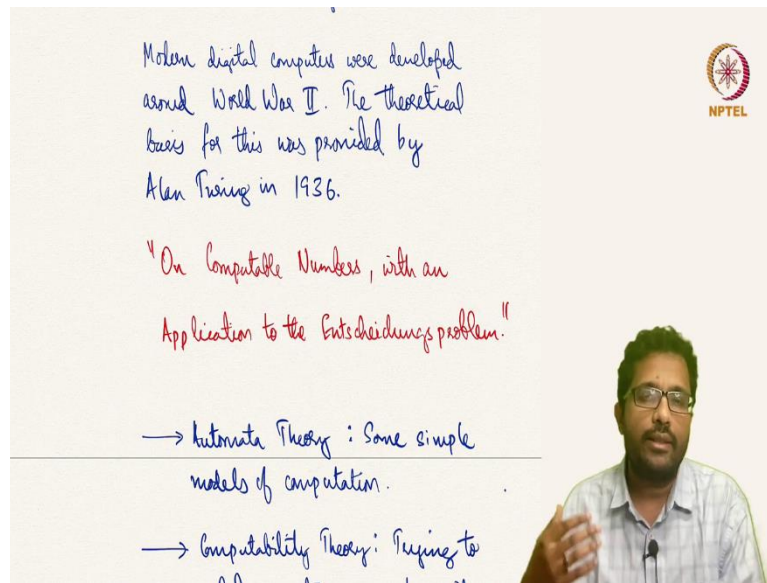 Modern digital computers were developed
around World War II. The theoretical
basis for this was provided by
Alan Turing in 1936.
NPTEL
"On Computable Numbers, with an
Application to the Entscheidungsproblem."
→ Automata Theory : Some simple
models of computation.
→ Computability Theory : Trying to